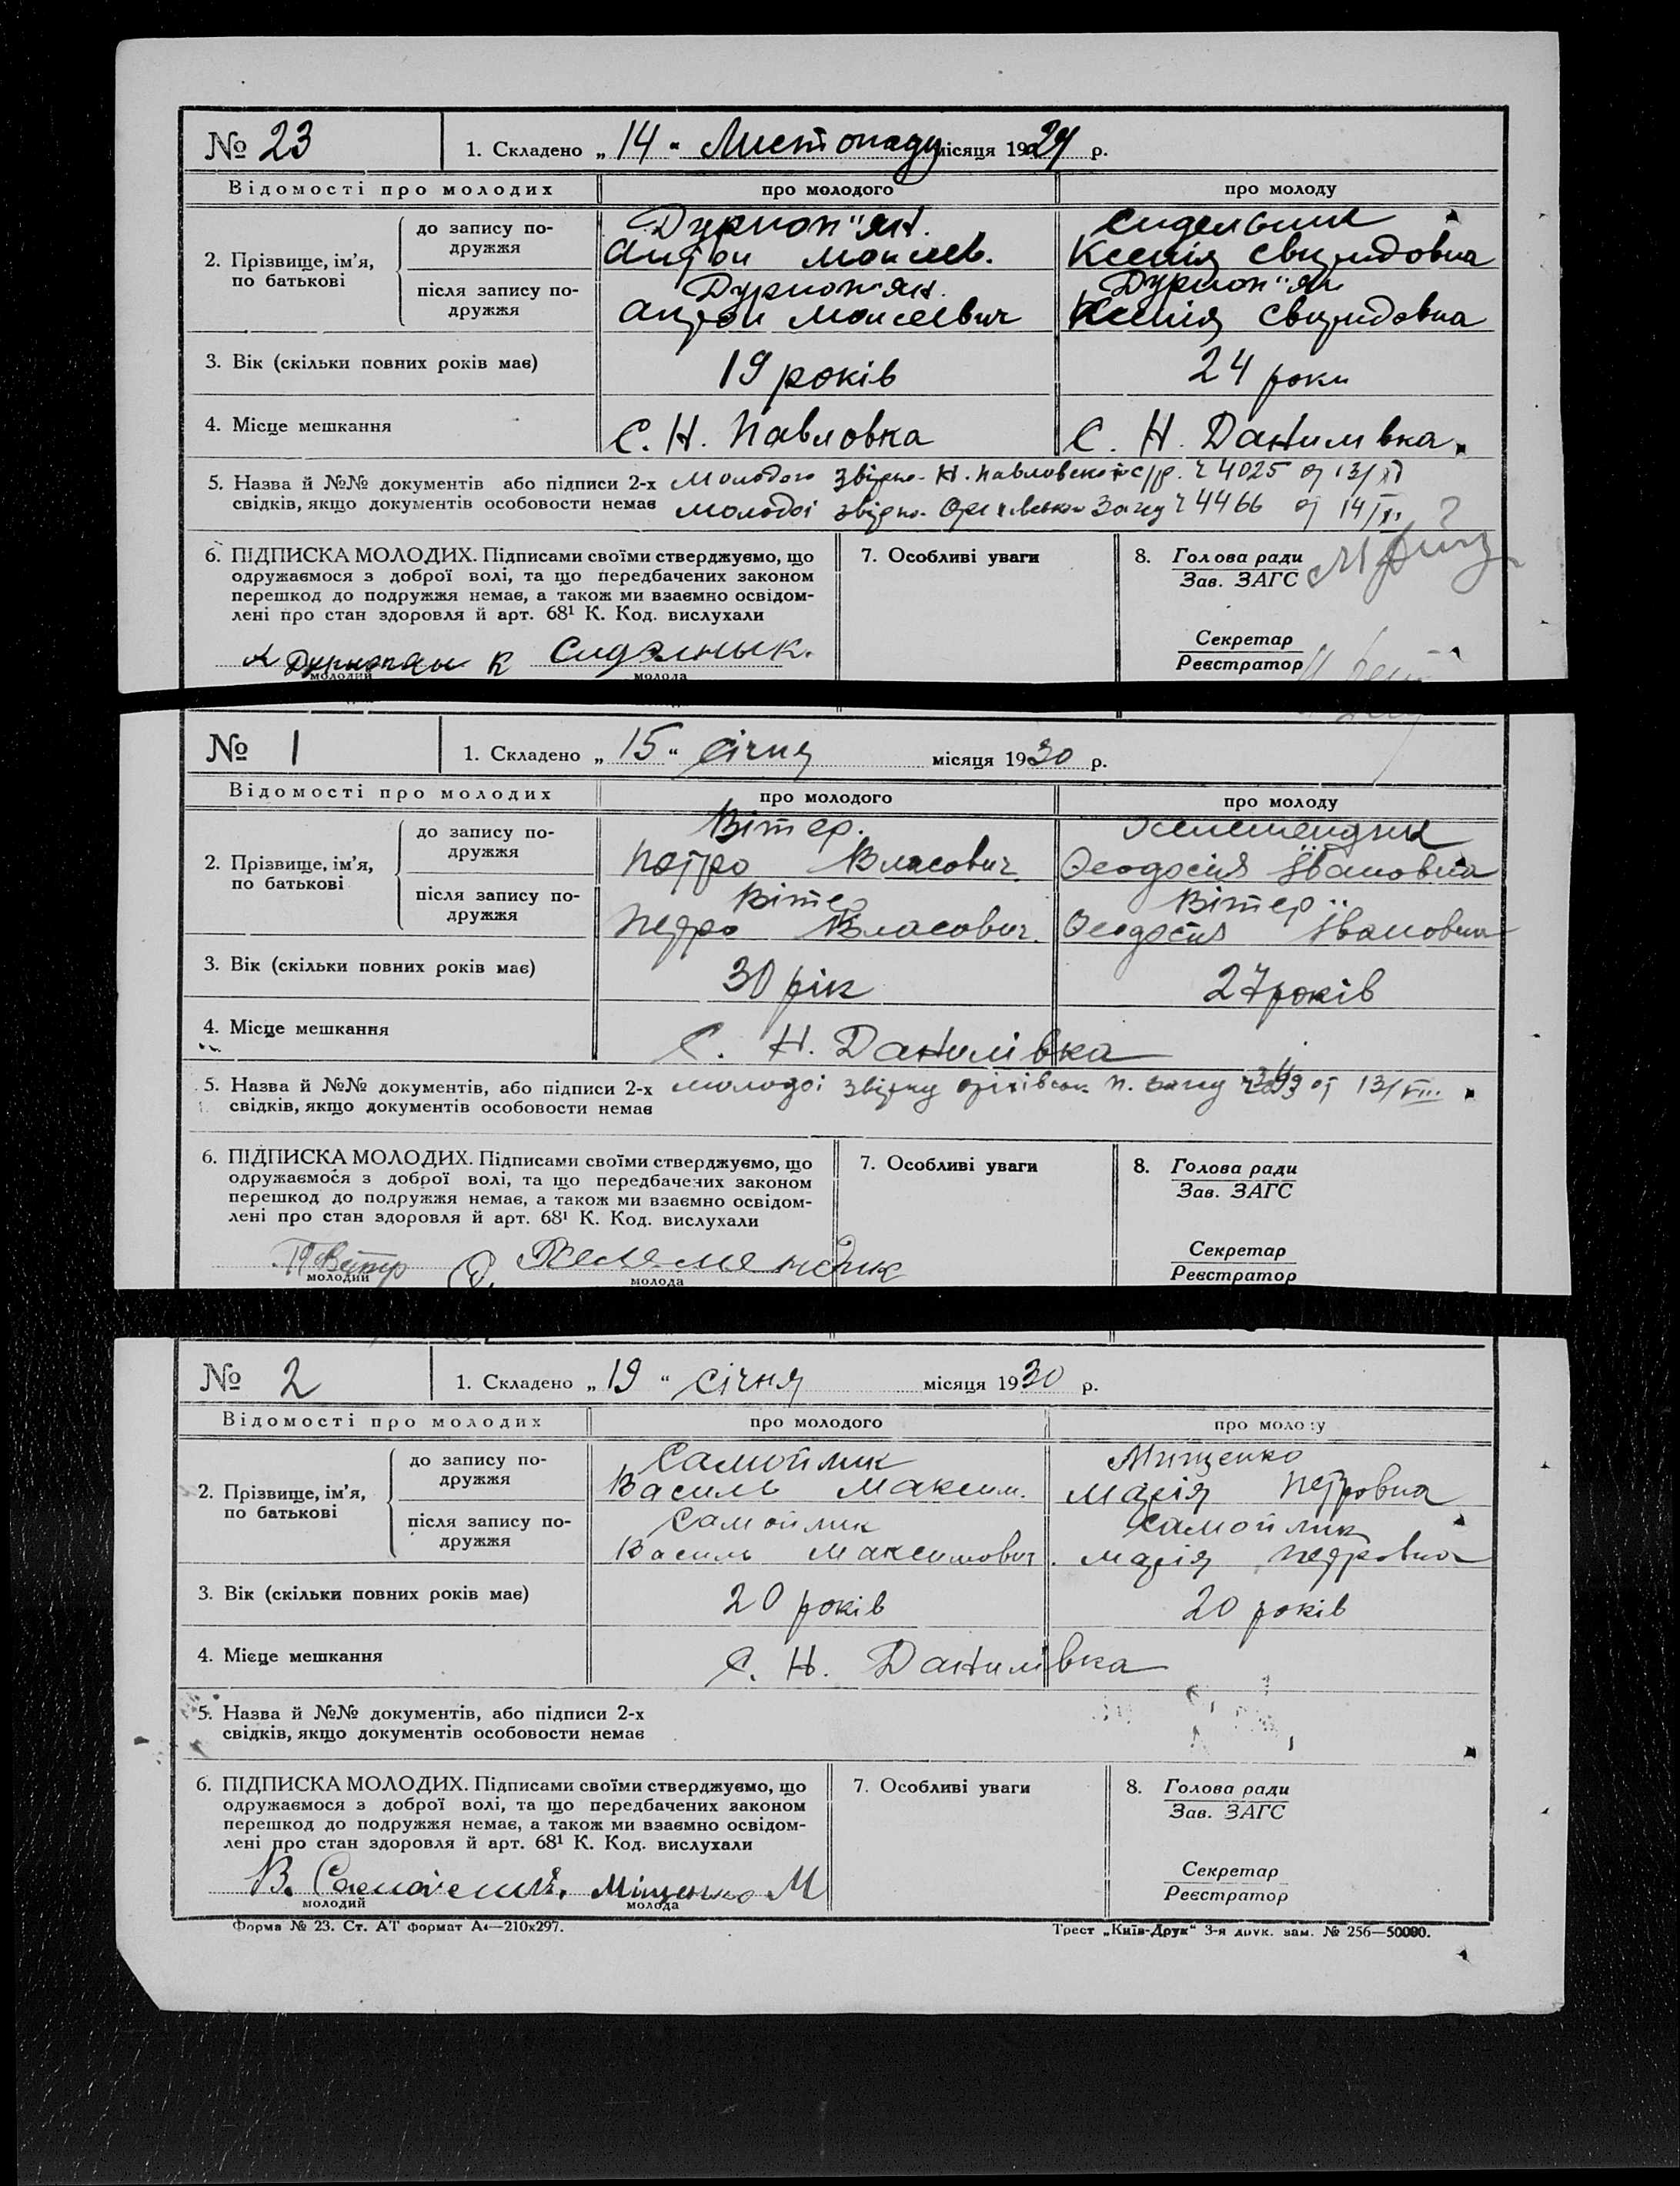 № 23
1. Складено „ 14 " Листопаду місяця 1929 р.
Відомості про молодих
про молодого
про молоду
2. Прізвище, ім'я,
по батькові
до запису по-
дружжя
Дурноп"ян.
Антон Моисев.
Сидельник
Ксенія Свиридовна
після запису по-
дружжя
Дурноп"ян.
Антон Моисеевич
Дурноп"ян
Ксенія Свиридовна
3. Вік (скільки повних років має)
19 років
24 роки
4. Місце мешкання
С. Н. Павловка
С. Н. Данилівка.
5. Назва й №№ документів або підписи 2-х
свідків, якщо документів особовости немає
Молодого Н. Павловської с/р. ч 4025 от 13/XI
молодої Загсу ч 4466 от 14/XI
6. ПІДПИСКА МОЛОДИХ. Підписами своїми стверджуємо, що
одружаємося з доброї волі, та що передбачених законом
перешкод до подружжя немає, а також ми взаємно освідом-
лені про стан здоровля й арт. 68¹ К. Код. вислухали
А Дурнопян
К Сидэлнык.
молодий
молода
7. Особливі уваги
8. Голова ради
Зав. ЗАГС
Секретар
Реєстратор
№ 1
1. Складено „ 15 " Січня місяця 1930 р.
Відомості про молодих
про молодого
про молоду
2. Прізвище, ім'я,
по батькові
до запису по-
дружжя
Вітер.
Петро Власович.
Феодосія Івановна
після запису по-
дружжя
Вітер
Петро Власович.
Вітер
Феодосія Івановна
3. Вік (скільки повних років має)
30 рік
27 років
4. Місце мешкання
С. Н. Данилівка
5. Назва й №№ документів, або підписи 2-х
свідків, якщо документів особовости немає
молодої оріхівськ. Р. Загсу от 13/VIII
6. ПІДПИСКА МОЛОДИХ. Підписами своїми стверджуємо, що
одружаємося з доброї волі, та що передбачених законом
перешкод до подружжя немає, а також ми взаємно освідом-
лені про стан здоровля й арт. 68¹ К. Код. вислухали
молодий
молода
7. Особливі уваги
8. Голова ради
Зав. ЗАГС
Секретар
Реєстратор
№ 2
1. Складено „ 19 " Січня місяця 1930 р.
Відомості про молодих
про молодого
про молоду
2. Прізвище, ім'я,
по батькові
до запису по-
дружжя
Самойлик
Василь Максим.
Міщенко
Марія Петровна
після запису по-
дружжя
Самойлик
Василь Максимович.
Самойлик
Марія Петровна
3. Вік (скільки повних років має)
20 років
20 років
4. Місце мешкання
С. Н. Данилівка
5. Назва й №№ документів, або підписи 2-х
свідків, якщо документів особовости немає
6. ПІДПИСКА МОЛОДИХ. Підписами своїми стверджуємо, що
одружаємося з доброї волі, та що передбачених законом
перешкод до подружжя немає, а також ми взаємно освідом-
лені про стан здоровля й арт. 68¹ К. Код. вислухали
Міщенко М
молодий
молода
7. Особливі уваги
8. Голова ради
Зав. ЗАГС
Секретар
Реєстратор
Форма № 23. Ст. АТ формат А4—210х297.
Трест „Київ-Друк" 3-я друк. зам. № 256—50000.